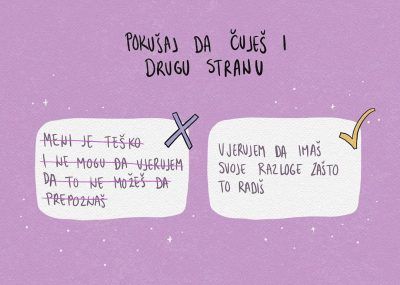 POKUŠAJ DA ČUJEŠ I
DRUGU STRANU
MENI JE TEŠKO
I NE MOGU DA VJERUJEM
DA TO NE MOŽEŠ DA
PREPOZNAŠ
VJERUJEM DA IMAŠ
SVOJE RAZLOGE ZAŠTO
TO RADIŠ